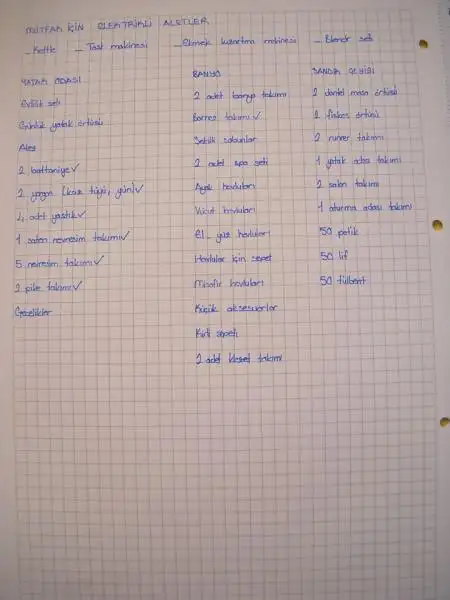 MUTFAK İÇİN ELEKTRİKLİ ALETLER
- Kettle - Tost makinesi - Ekmek kızartma makinesi - Blendır seti
YATAK ODASI
Evlilik seti
Günlük yatak örtüsü
Alez
2 battaniye ✓
2 yorgan (kaz tüyü, yün) ✓
4 adet yastık ✓
1 saten nevresim takımı ✓
5 nevresim takımı ✓
2 pike takımı ✓
Gecelikler
BANYO
2 adet banyo takımı
Bornoz takımı ✓
Şekilli sabunlar
2 adet spa seti
Ayak havluları
Vücut havluları
El - yüz havluları
Havlular için sepet
Misafir havluları
Küçük aksesuarlar
Kirli sepeti
2 adet klozet takımı
SANDIK ÇEYİZİ
2 dantel masa örtüsü
2 fiskos örtüsü
2 runner takımı
1 yatak odası takımı
2 salon takımı
1 oturma odası takımı
50 patik
50 lif
50 tülbent